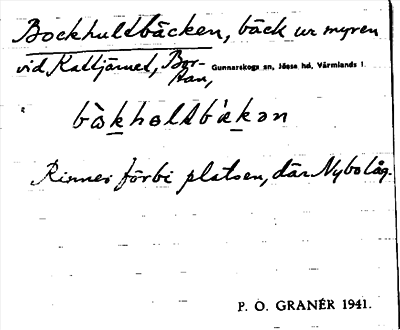 Bockhultbäcken, bäck ur myren
vid Kattjärnet, Bor-
tan, Gunnarskogs sn, Jösse hd, Värmlands l.
bòkhǝltbäkǝn
Rinner förbi platsen, där Nybo låg.
P. O. GRANÉR 1941.